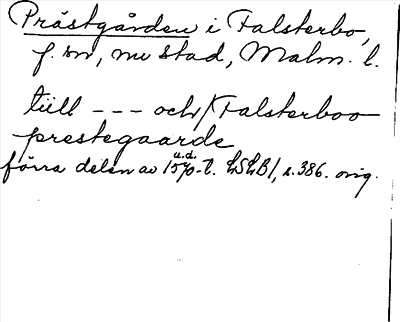 Prästgården i Falsterbo,
f. sn, nu stad, Malm. l.
tiill --- och/Falsterboo
prestegaarde
u.d.
förra delen av 1570-t. LSLB1, s. 386. orig.